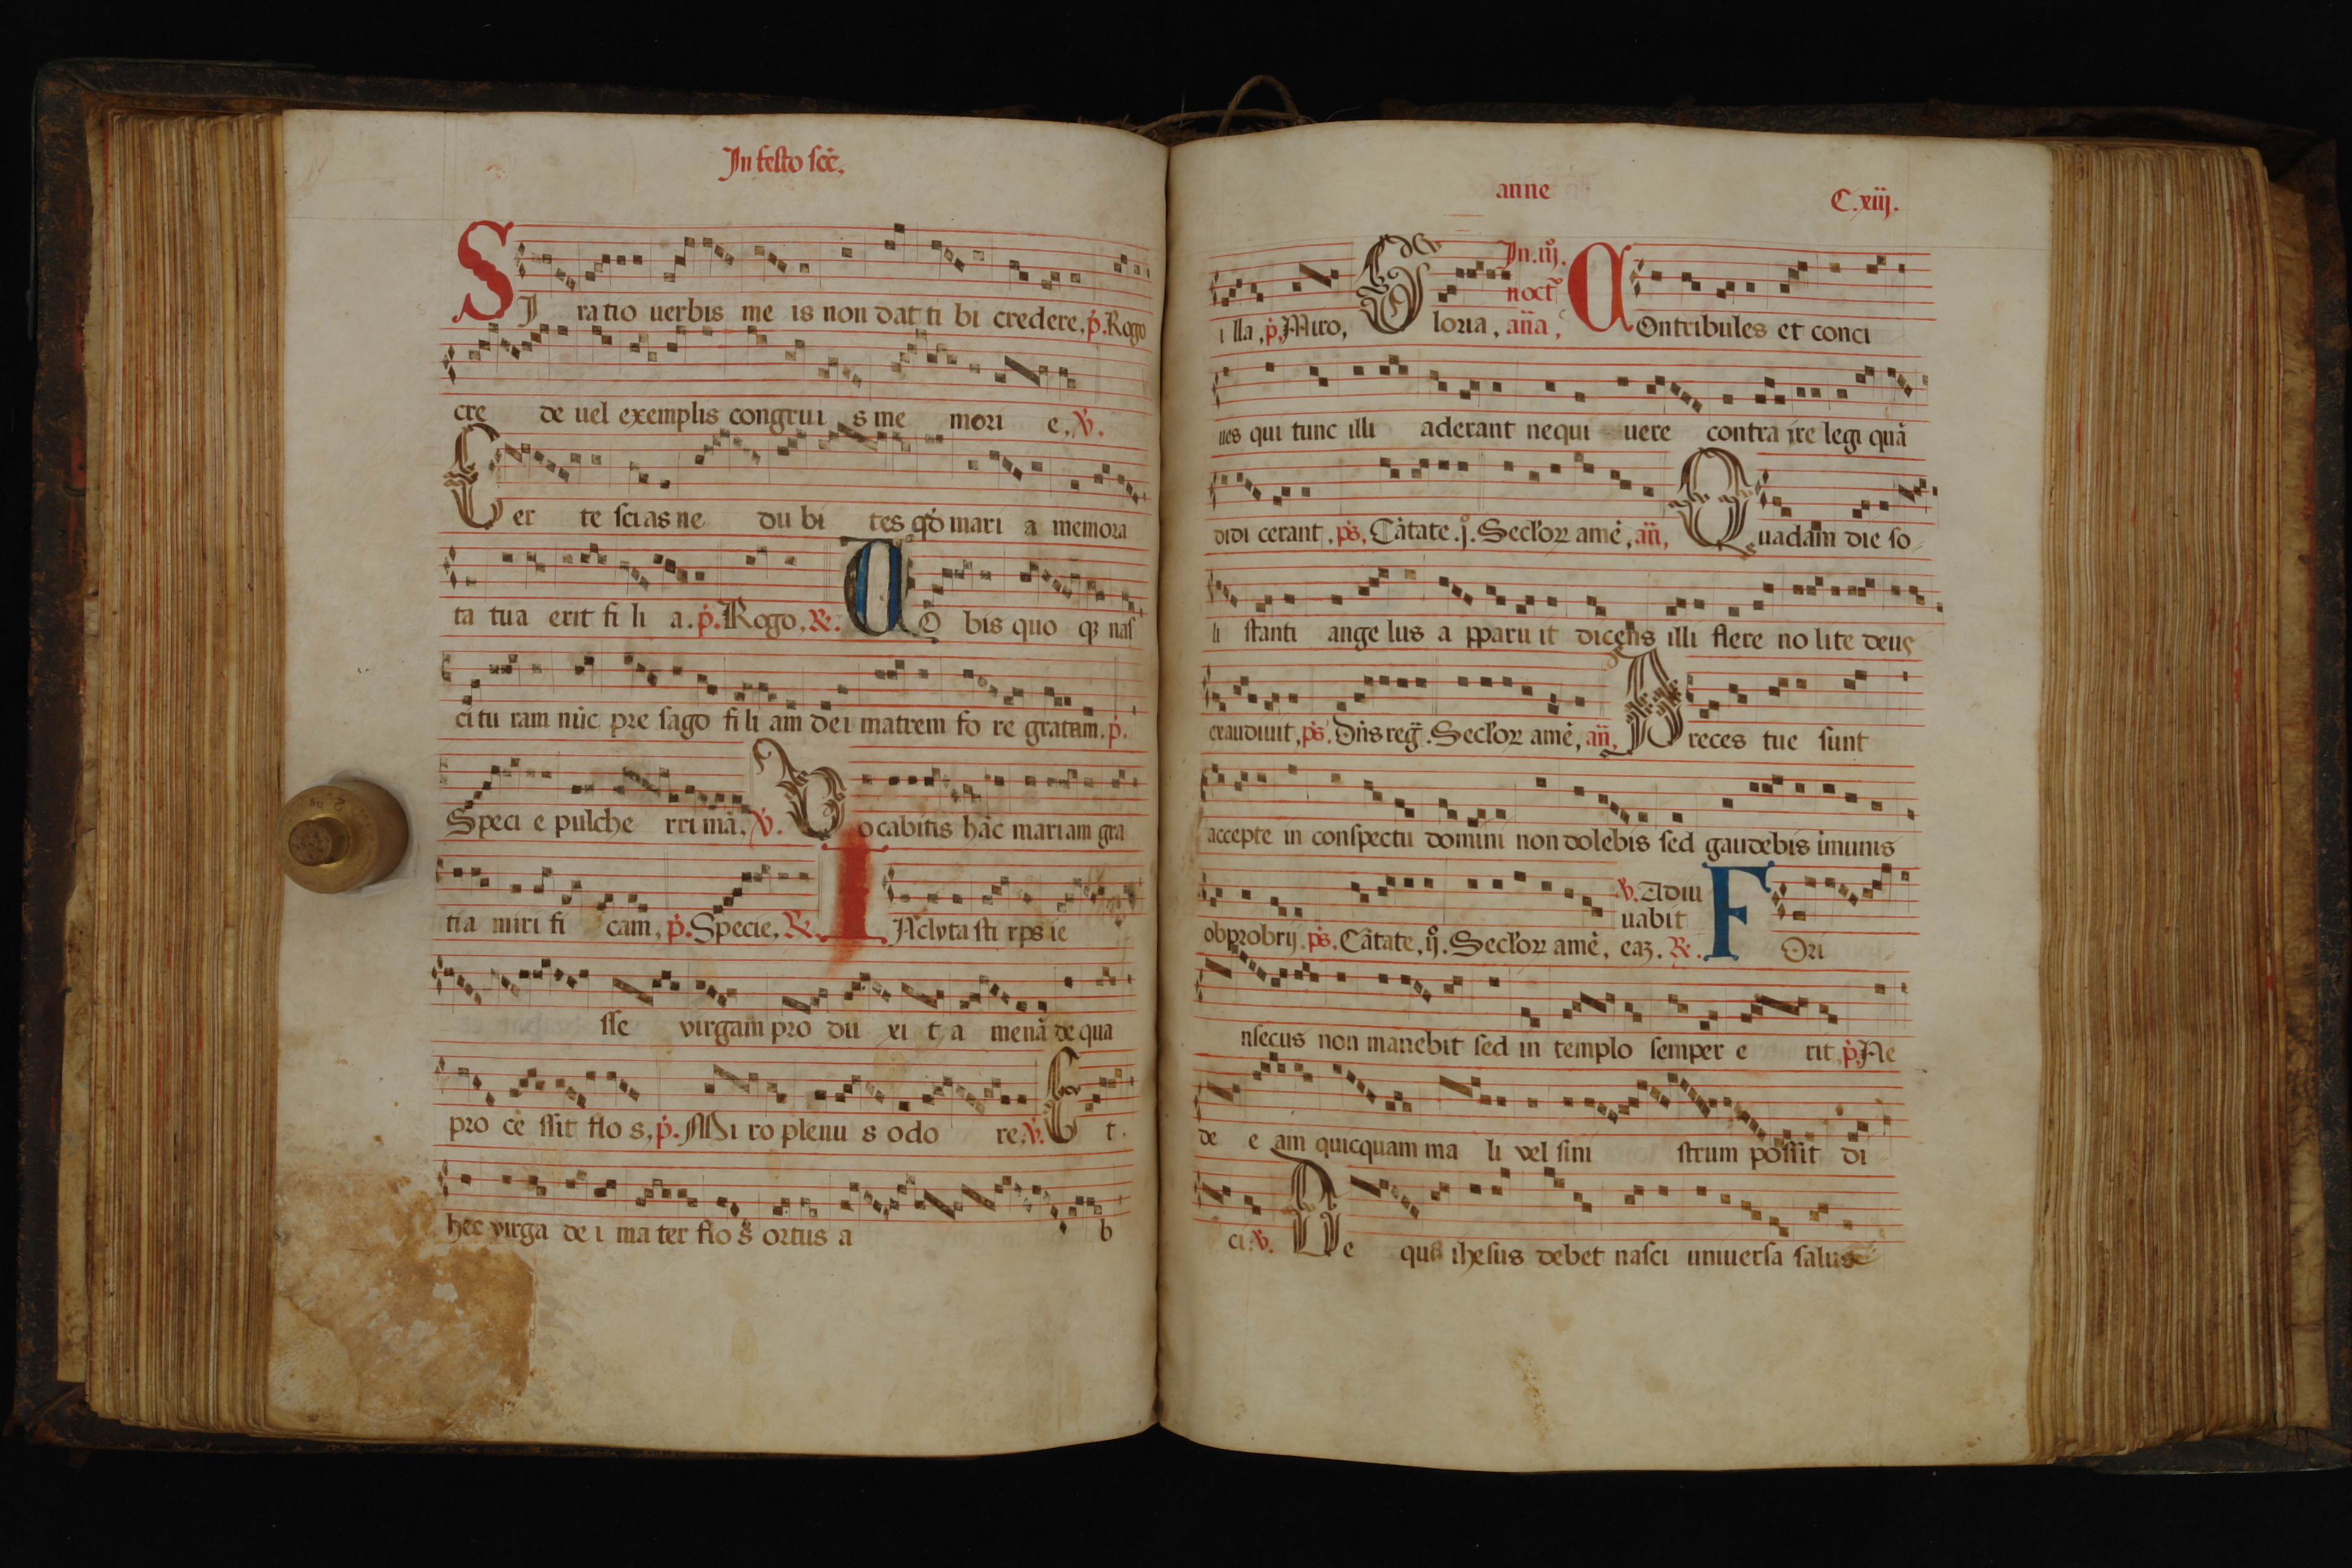 In festo scē.
SI ra tio uerbis me is non dat ti bi credere, p̄. Rogo
cre de uel exemplis congrui s me mori e, ℣.
Cer te scias ne du bi tes qd̄ mari a memora
ta tua erit fi li a. p̄. Rogo, ℟.
Uo bis quo qꝫ nas
ci tu ram nūc pre sago fi li am dei matrem fo re gratam. p̄.
Speci e pulche rri mā. ℣. Vocabitis hāc mariam gra
tia miri fi cam, p̄. Specie, ℟. INclyta sti rps ie
sse virgam pro du xi t a menā de qua
pro ce ssit flo s, p̄. Mi ro plenu s odo re. ℣. Et.
hec virga de i ma ter flo s ortus a b
anne
C.xiij.
i lla, p̄. Miro, Gloria, aña,
In .iij. noct̄
COntribules et conci
ues qui tunc illi aderant nequi uere contra ire legi quā
didi cerant, ps̄, Cātate .j. Seclorꝝ amē, añ, Quadam die so
li stanti ange lus a pparu it dicens illi flere no lite deus
exaudiuit, ps̄. Dn̄s reḡ. Seclorꝝ amē, añ, Preces tue sunt
accepte in conspectu domini non dolebis sed gaudebis īmunis
obprobrij. ps̄. Cātate, ij. Seclorꝝ amē, ℣. Adiu
uabit eaꝫ. ℟. FOri
nsecus non manebit sed in templo semper e rit, p̄. Ne
de e am quicquam ma li vel sini strum possit di
ci. ℣. De qua ihesus debet nasci uniuersa salus